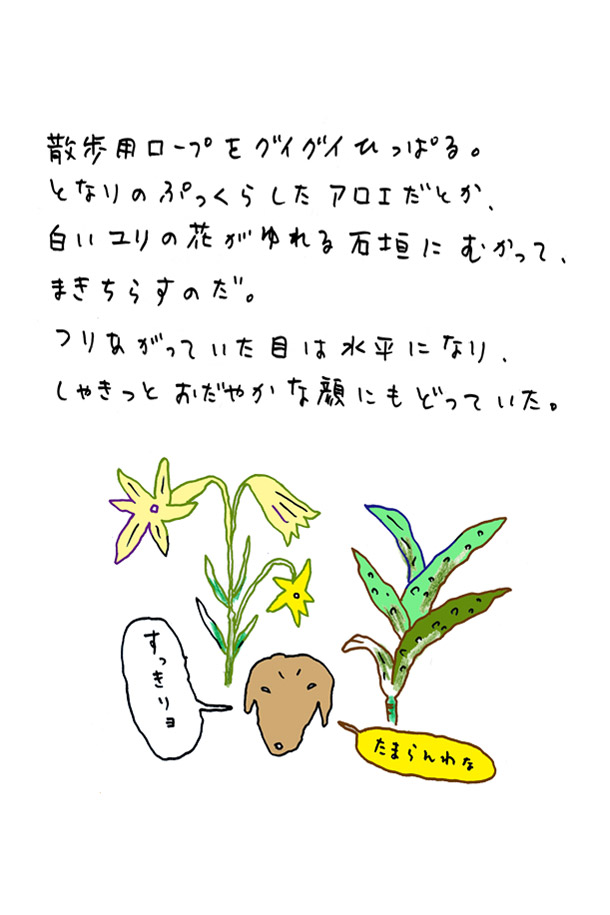 散歩用ロープをグイグイひっぱる。
となりのぷっくらしたアロエだとか、
白いユリの花がゆれる石垣にむかって、
まきちらすのだ。
つりあがっていた目は水平になり、
しゃきっとおだやかな顔にもどっていた。
すっきりヨ
たまらんわな